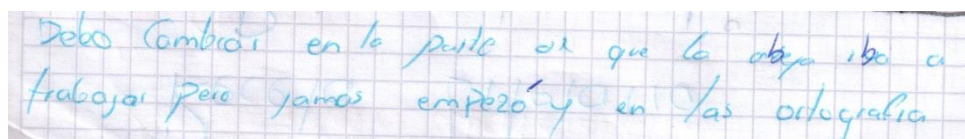 Debo Cambiar en la parte en que la abeja iba a
trabajar pero jamas empezó y en las ortografia